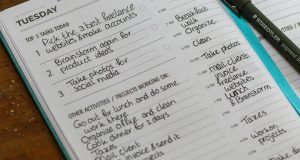 TUESDAY
TOP 3 TASKS TODAY
1 Pick the 3 best freelance
websites & make accounts
2 Brainstorm again for
product ideas
3 Take photos for
social media
OTHER ACTIVITIES / PROJECTS WORKING ON:
Go out for lunch and do some
work there
Organize office and clean
Cook dinner for 2 days
Taxes
Mail client
invoice & send it
Breakfast
walk
Organize
Clean
Take photos
Mail client
invoice
freelance
websites
Lunch
& Brainstorm
Taxes
Work on
projects